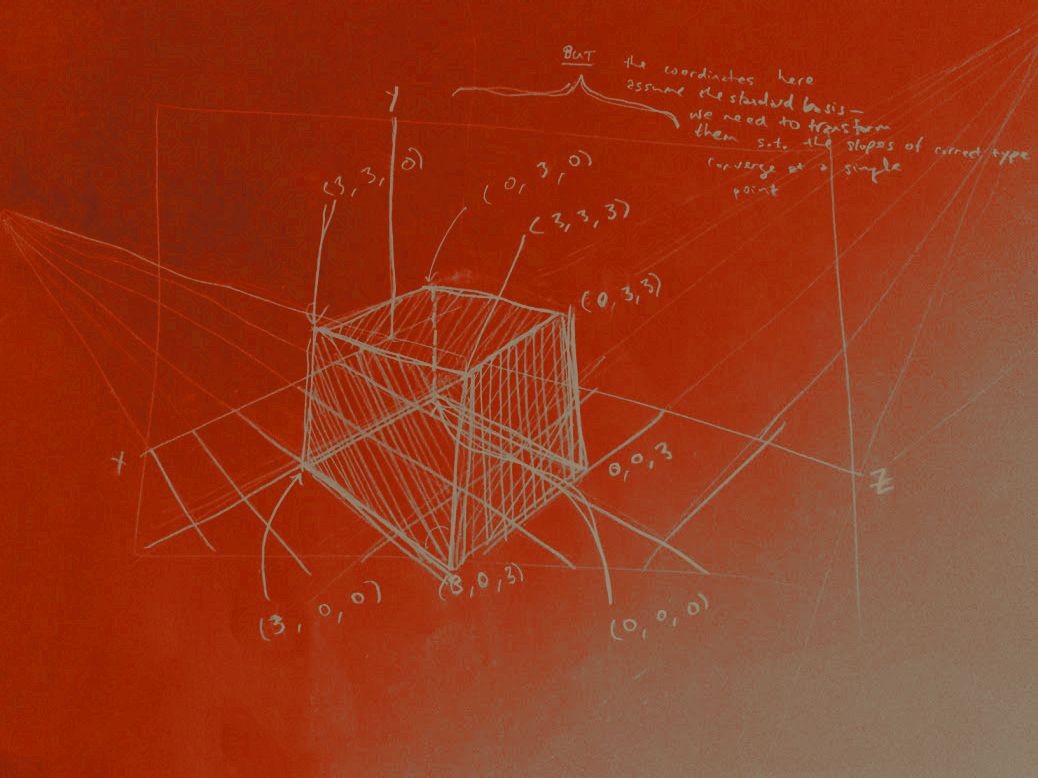 BUT the coordinates here
assume the standard basis —
we need to transform
them s.t. the slopes of correct type
converge at a single
point
Y
(3, 3, 0)
(0, 3, 0)
(3, 3, 3)
(0, 3, 3)
X
0, 0, 3
Z
(3, 0, 0)
(3, 0, 3)
(0, 0, 0)